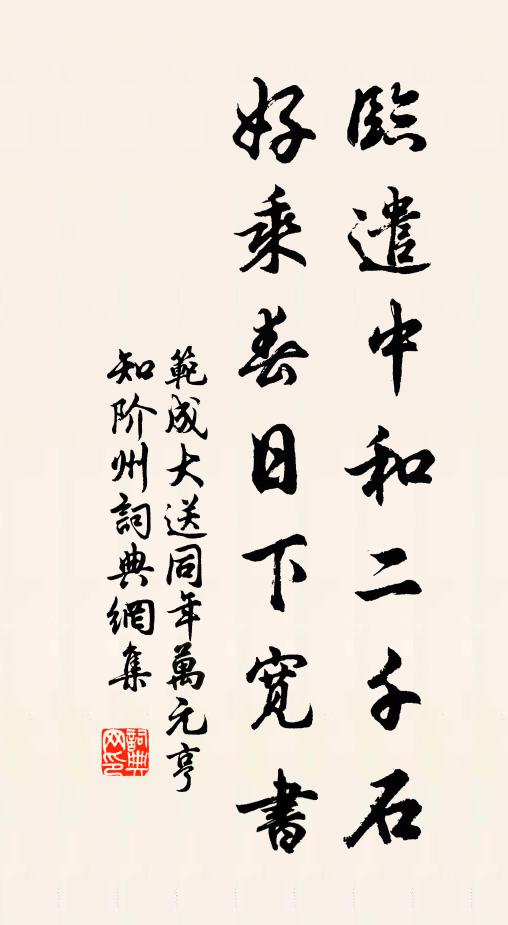 臨遣中和二千石
好乘春日下寬書
範成大送同年萬元亨
知阶州詞典網集
詞典網印